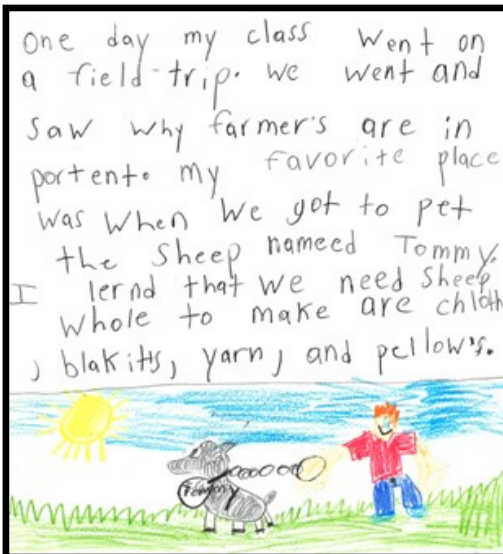 One day my class went on
a field-trip. we went and
Saw why farmer's are in
portent. my favorite place
was when we got to pet
the sheep nameed Tommy.
I lernd that we need sheep
whole to make are chloth
, blakitts, yarn, and pellow's.
Tommy